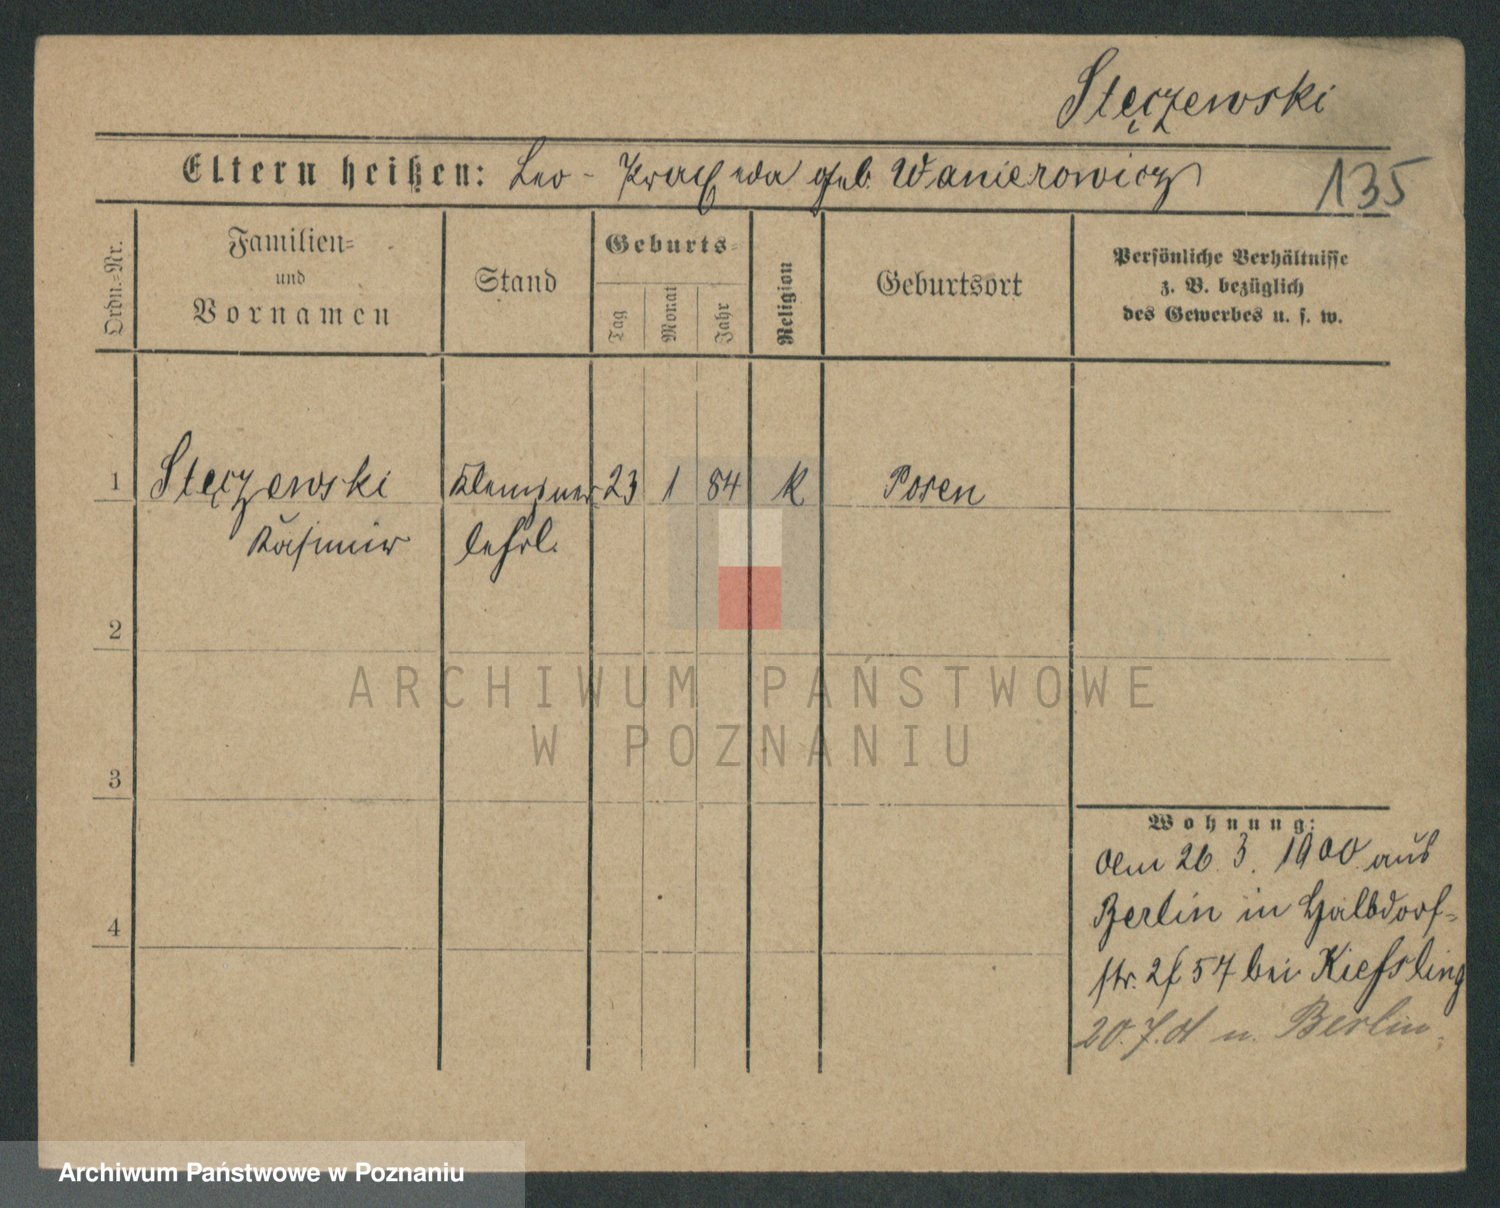 Stęczewski
Eltern heißen: Leo - Praxeda geb. Wanierowicz
135
Ordn.=Nr.
Familien=
und
Vornamen
Stand
Geburts=
Tag
Monat
Jahr
Religion
Geburtsort
Persönliche Verhältnisse
z. B. bezüglich
des Gewerbes u. s. w.
1 Stęczewski Klempner 23 1 84 K Posen
Kasimir lehrl.
2
ARCHIWUM PAŃSTWOWE
W POZNANIU
3
Wohnung:
26. 3. 1900 aus
4
Berlin in Halbdorf=
str. 54 bei Kiefsling
20. 7. n. Berlin
Archiwum Państwowe w Poznaniu